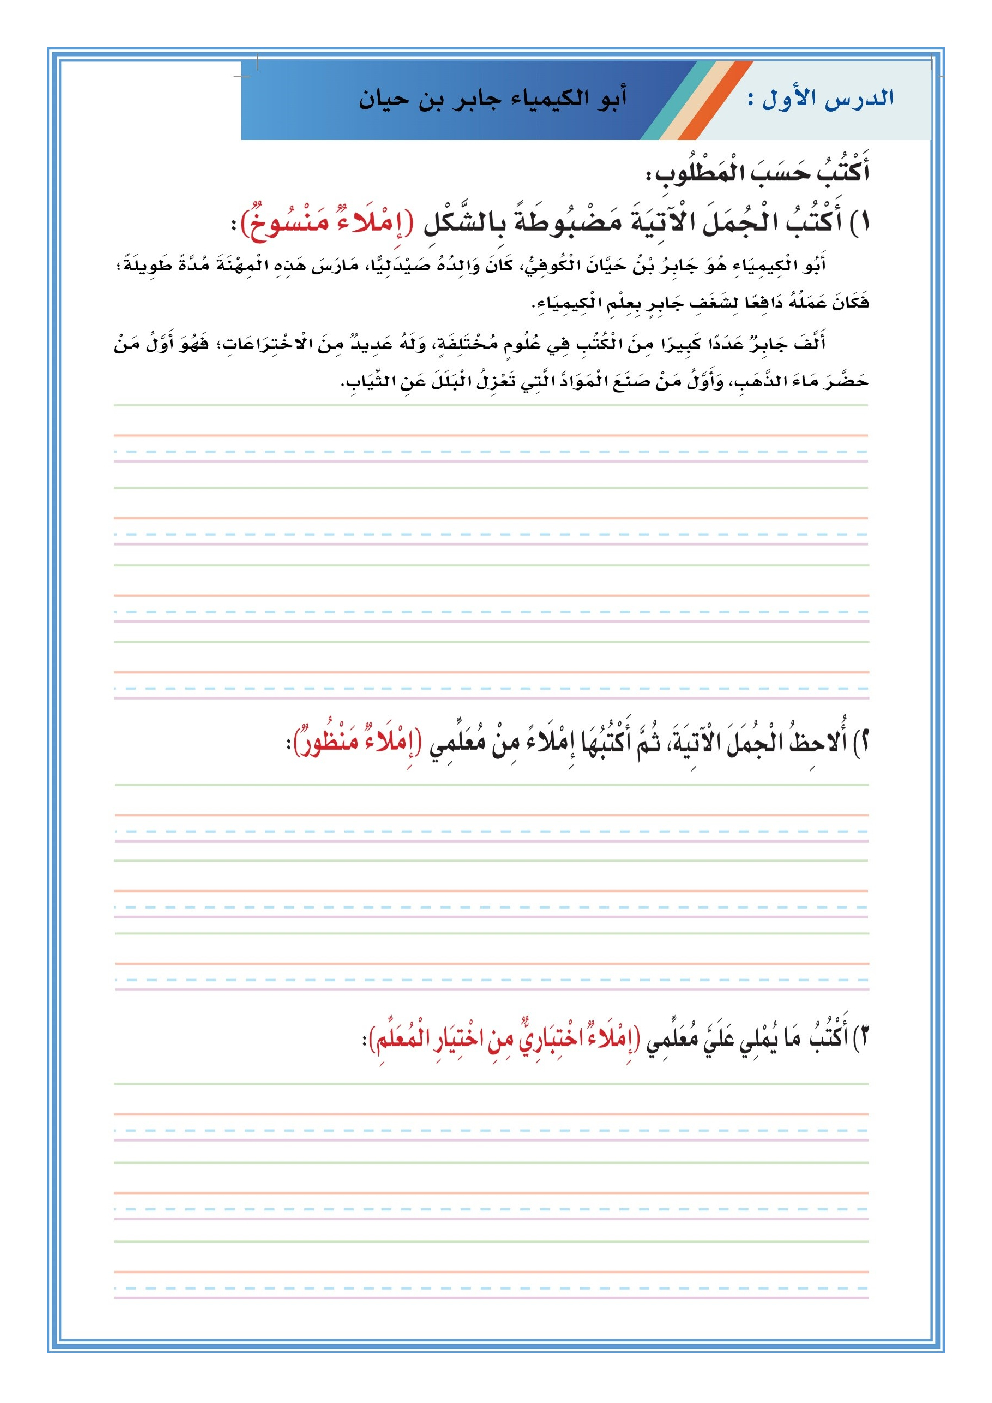 الدرس الأول :
أبو الكيمياء جابر بن حيان
أَكْتُبُ حَسَبَ الْمَطْلُوبِ:
١) أَكْتُبُ الْجُمَلَ الْآتِيَةَ مَضْبُوطَةً بِالشَّكْلِ (إِمْلَاءٌ مَنْسُوخٌ):
أَبُو الْكِيمِيَاءِ هُوَ جَابِرُ بْنُ حَيَّانَ الْكُوفِيُّ، كَانَ وَالِدُهُ صَيْدَلِيًّا، مَارَسَ هَذِهِ الْمِهْنَةَ مُدَّةً طَوِيلَةً؛
فَكَانَ عَمَلُهُ دَافِعًا لِشَغَفِ جَابِرٍ بِعِلْمِ الْكِيمِيَاءِ.
أَلَّفَ جَابِرٌ عَدَدًا كَبِيرًا مِنَ الْكُتُبِ فِي عُلُومٍ مُخْتَلِفَةٍ، وَلَهُ عَدِيدٌ مِنَ الْاخْتِرَاعَاتِ؛ فَهُوَ أَوَّلُ مَنْ
حَضَّرَ مَاءَ الذَّهَبِ، وَأَوَّلُ مَنْ صَنَعَ الْمَوَادَّ الَّتِي تَعْزِلُ الْبَلَلَ عَنِ الثِّيَابِ.
٢) أُلاحِظُ الْجُمَلَ الْآتِيَةَ، ثُمَّ أَكْتُبُهَا إِمْلَاءً مِنْ مُعَلِّمِي (إِمْلَاءٌ مَنْظُورٌ):
٣) أَكْتُبُ مَا يُمْلِي عَلَيَّ مُعَلِّمِي (إِمْلَاءٌ اخْتِبَارِيٌّ مِنِ اخْتِيَارِ الْمُعَلِّمِ):